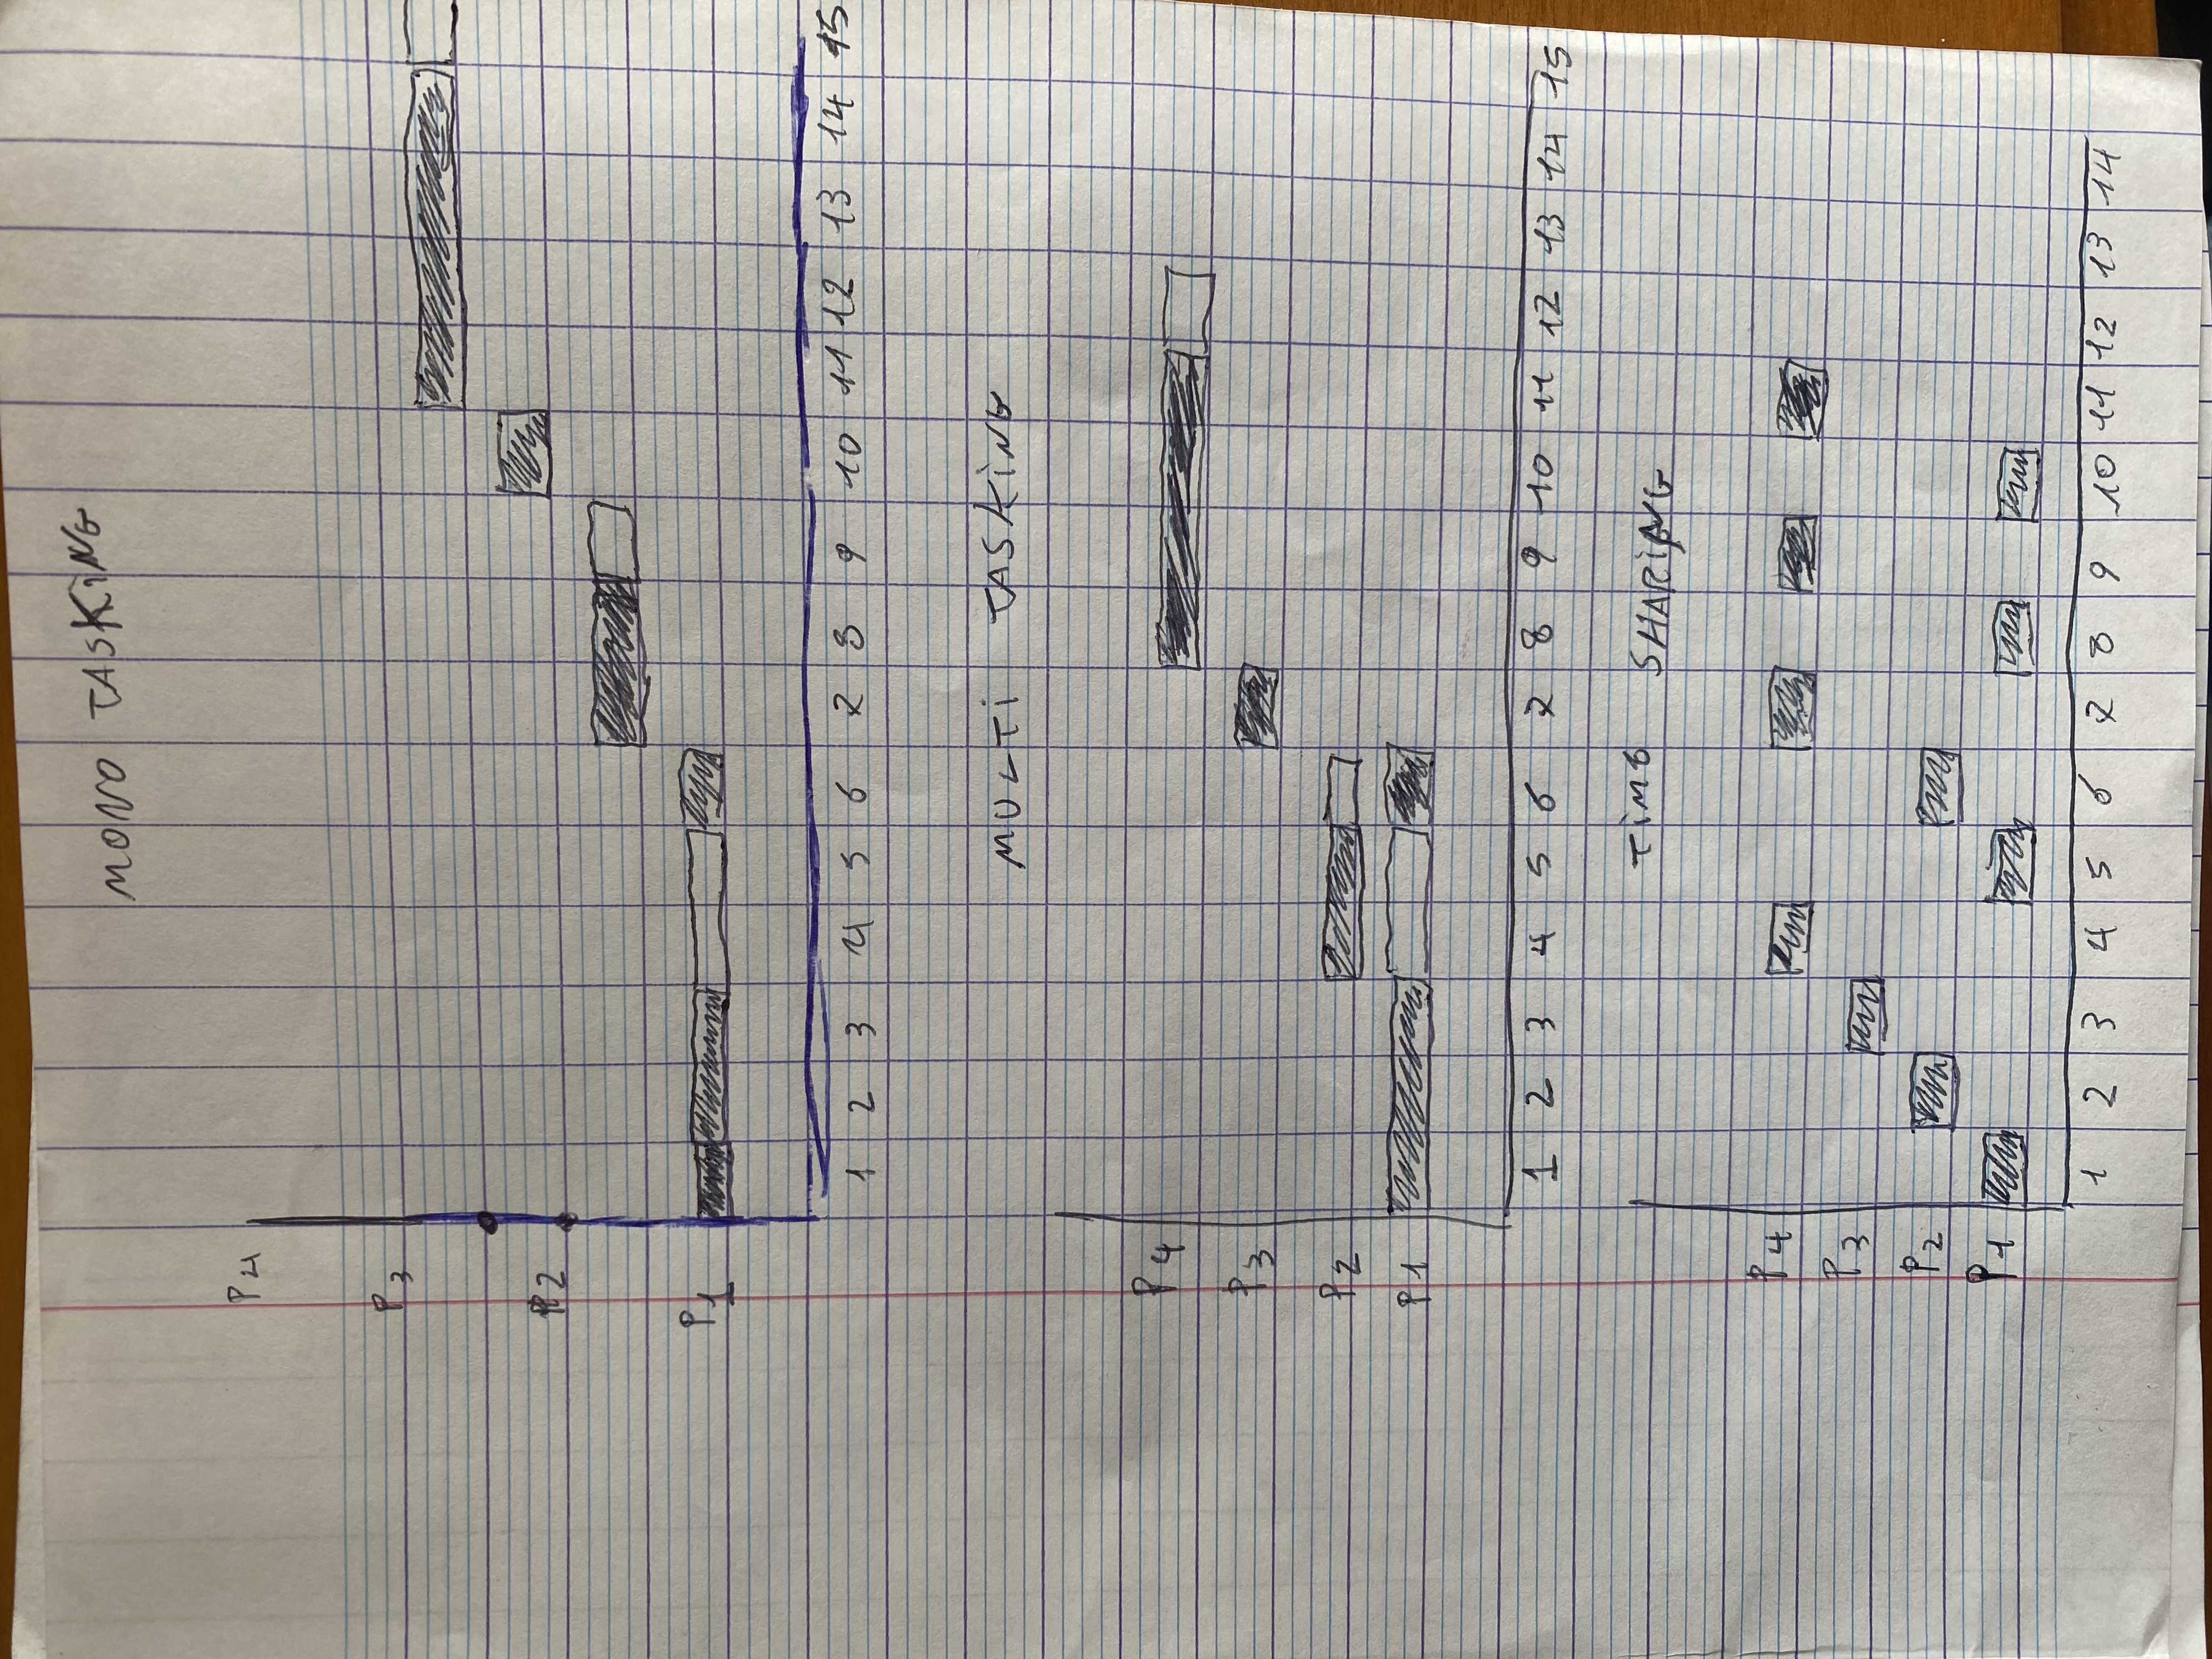 MONO TASKiNG
P4
P3
P2
P1
1 2 3 4 5 6 7 8 9 10 11 12 13 14 15
MULTi TASKiNG
P4
P3
P2
P1
1 2 3 4 5 6 7 8 9 10 11 12 13 14 15
TiME SHARiNG
P4
P3
P2
P1
1 2 3 4 5 6 7 8 9 10 11 12 13 14